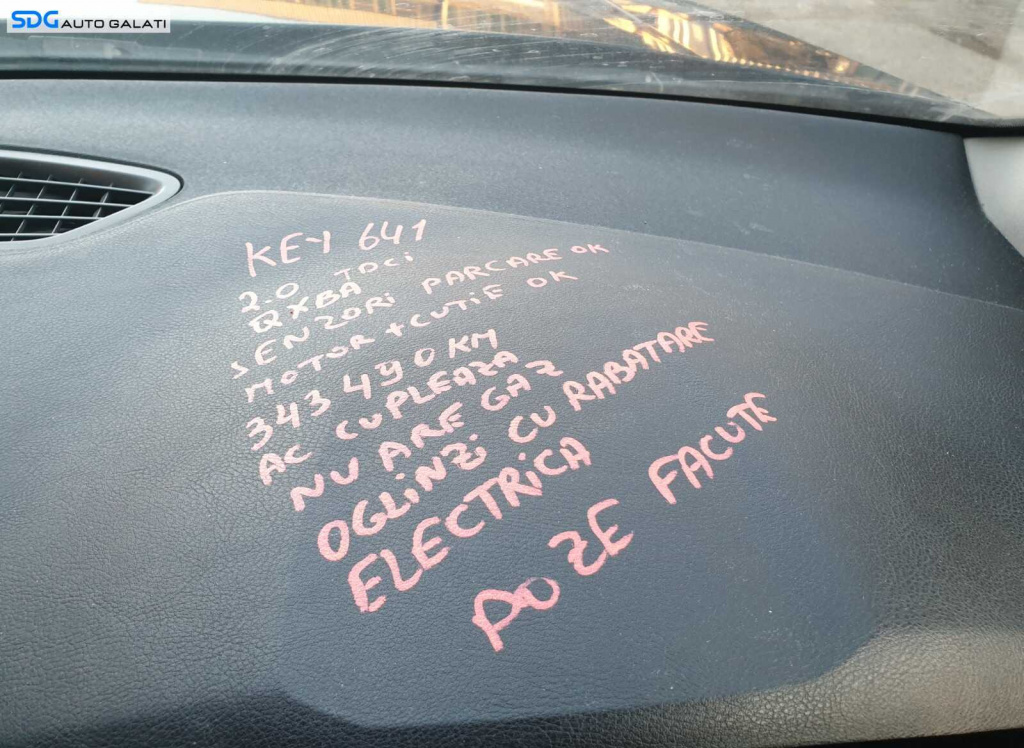 SDG AUTO GALATI
KEY 641
2.0 TDCi
QXBA
SENZORI PARCARE OK
MOTOR + CUTiE OK
343490 KM
AC CUPLEAZA
NU ARE GAZ
OGLiNZi CU RABATARE
ELECTRiCA
POZE FACUTE